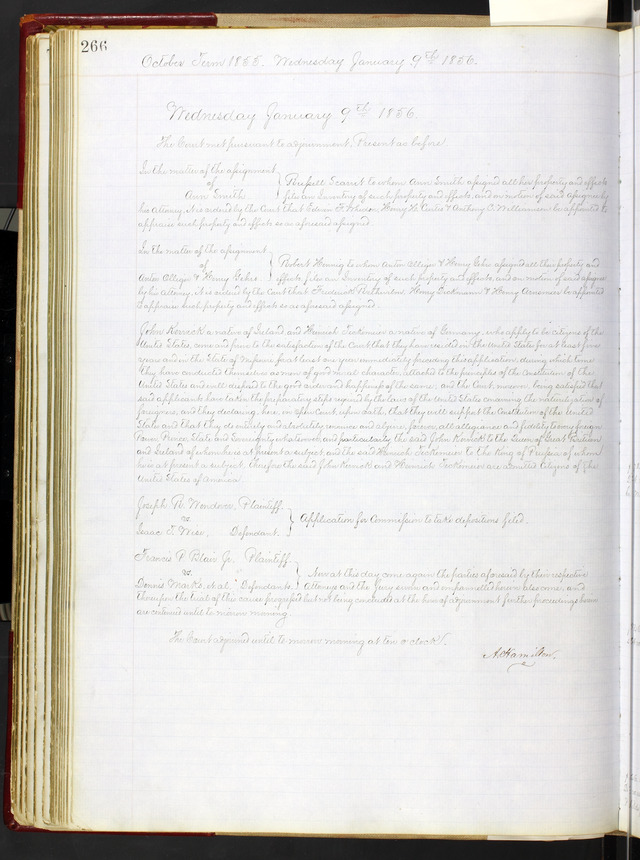 266
October Term 1855. Wednesday January 9th 1856.
Wednesday January 9th 1856.
The Court met pursuant to adjournment, Present as before
In the matter of the assignment
of
Ann Smith
Russell Scarret to whom Ann Smith assigned all her property and effects
files an Inventory of such property and effects, and on motion of said Assignee by
his Attorney, it is ordered by the Court that Edwin F. Henry H. Curtis & Anthony C. Williamson be appointed to
appraise such property and effects so as aforesaid assigned.
In the matter of the assignment
of
& Henry
Robert Hennig to whom & Henry assigned all their property and
effects, files an Inventory of such property and effects, and on motion of said assignee
by his Attorney, it is ordered by the Court that Frederick Henry Dieckmann & Henry be appointed
to appraise such property and effects so as aforesaid assigned.
John Kerrick a native of Ireland and Heinrich Fockenson a native of Germany, who apply to be citizens of the
United States, come and prove to the satisfaction of the Court that they have resided in the United States for at least five
years and in the State of Missouri for at least one year immediately preceding this application, during which time
they have conducted themselves as men of good moral character, attached to the principles of the Constitution of the
United States and well disposed to the good order and happiness of the same; and the Court, moreover, being satisfied that
said applicants have taken the preparatory steps required by the laws of the United States concerning the naturalization of
foreigners; and they declaring, here, in open Court, upon oath, that they will support the Constitution of the United
States and that they do entirely and absolutely renounce and abjure, forever, all allegiance and fidelity to every foreign
Power, Prince, State and Sovereignty whatsoever, and particularly the said John Kerrick to the Queen of Great Britain
and Ireland of whom he is at present a subject, and the said Heinrich Fockenson to the King of Prussia of whom
he is at present a subject, therefore the said John Kerrick and Heinrich Fockenson are admitted Citizens of the
United States of America.
Joseph R. Wendover, Plaintiff.
vs.
Isaac T. Wise, Defendant.
Application for Commission to take depositions filed.
Francis P. Blair Jr. Plaintiff.
vs.
Dennis Marks, et al. Defendants.
Now at this day come again the parties aforesaid by their respective
Attorneys and the Jury sworn and empannelled herein also come, and
thereupon the trial of this cause progressed but not being concluded at the hour of adjournment further proceedings herein
are continued until to morrow morning.
The Court adjourned until to morrow morning at ten o'clock.
A. Hamilton.